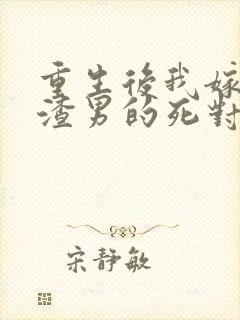 重生後我嫁
渣男的死對
宋靜敏